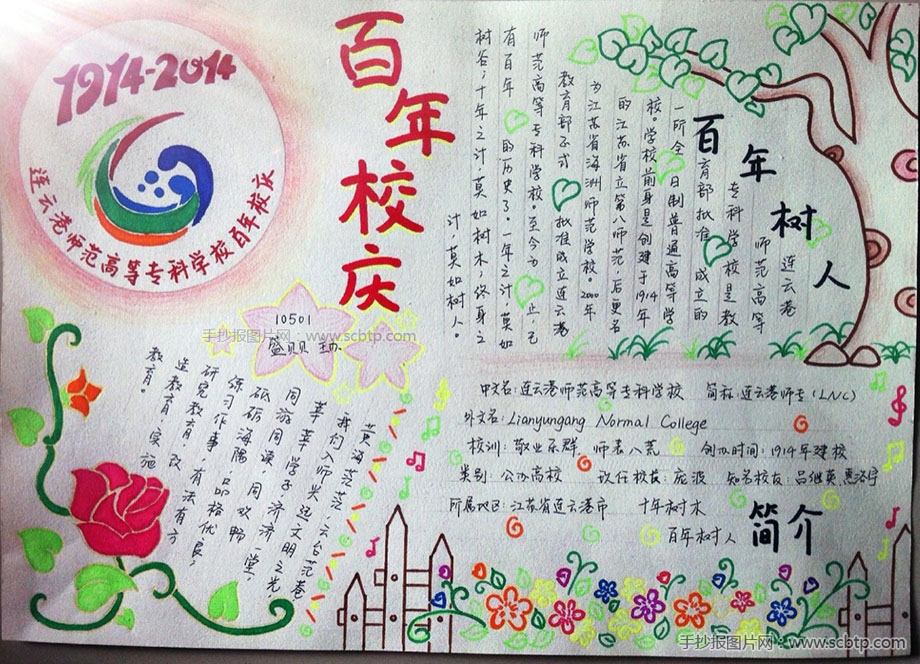 1914-2014
连云港师范高等专科学校百年校庆
百年校庆
百年树人
连云港
师范高等
专科学校是教
育部批准成立的
一所全日制普通高等学
校。学校前身是创建于1914年
的江苏省立第八师范，后更名
为江苏省海洲师范学校。2000年
教育部正式批准成立连云港
师范高等专科学校。至今为止已
有百年的历史了。一年之计，莫如
树谷；十年之计，莫如树木；终身之
计，莫如树人。
10501
盛贝贝 主办
手抄报图片网：www.scbtp.com
黄海茫茫，云台苍苍
我们入师 文明之光，
莘莘学子，济济一堂，
周游周 ，周欢畅
砥砺海隅，品格优良，
练习作事，有法有方
研究教育，改
造教育，实施
教育。
中文名：连云港师范高等专科学校 简称：连云港师专（LNC）
外文名：Lianyungang Normal College
校训：敬业乐群 师表八荒 创办时间：1914年建校
类别：公办高校 现任校长：庞波 知名校友：吕继英 惠浴宇
所属地区：江苏省连云港市 十年树木
百年树人 简介
手抄报图片网：www.scbtp.com